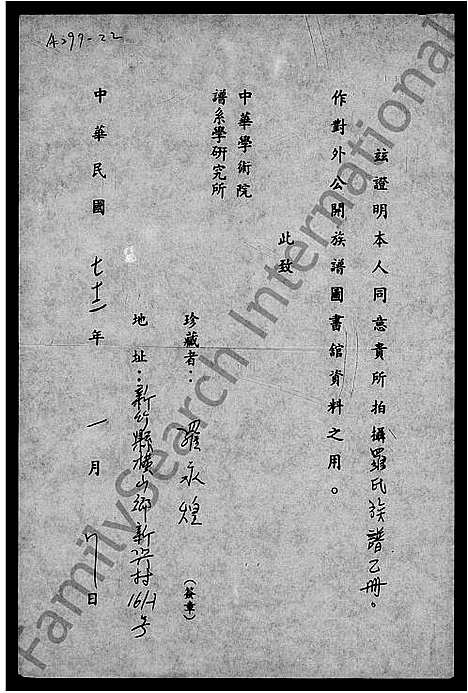 A299-22
茲證明本人同意貴所拍攝羅氏族譜乙册。
作對外公開族譜圖書館資料之用。
此致
中華學術院
譜系學研究所
珍藏者：羅永煌（簽章）
地址：新竹縣橫山鄉新興村16鄰 號
中華民國七十二年一月 日
FamilySearch International